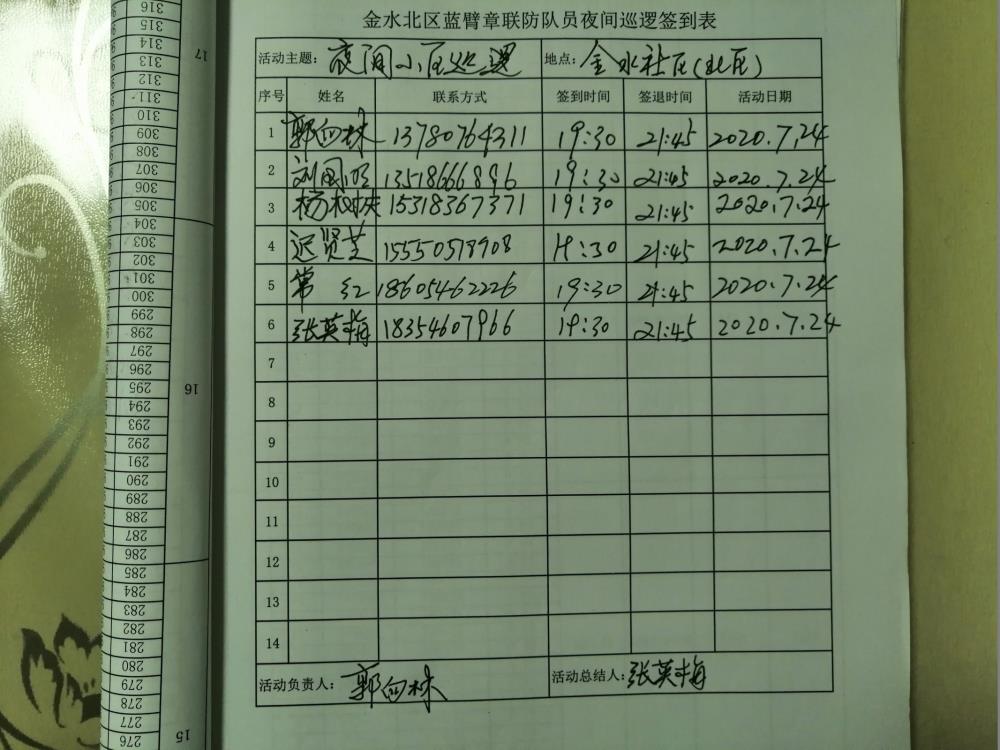 金水北区蓝臂章联防队员夜间巡逻签到表
活动主题: 夜间小区巡逻 地点: 金水社区(北区)
序号 姓名 联系方式 签到时间 签退时间 活动日期
1 郭向林 13780764311 19:30 21:45 2020.7.24
2 刘国明 13518666896 19:30 21:45 2020.7.24
3 杨树林 15318367371 19:30 21:45 2020.7.24
4 迟贤芝 15550518908 19:30 21:45 2020.7.24
5 常红 18605462226 19:30 21:45 2020.7.24
6 张英梅 18354607966 19:30 21:45 2020.7.24
7
8
9
10
11
12
13
14
活动负责人: 郭向林 活动总结人: 张英梅
316
315
314
313
312
311
310
309
308
307
306
305
304
303
302
301
300
299
298
297
296
295
294
293
292
291
290
289
288
287
286
285
284
283
282
281
280
279
278
277
276
17
16
15